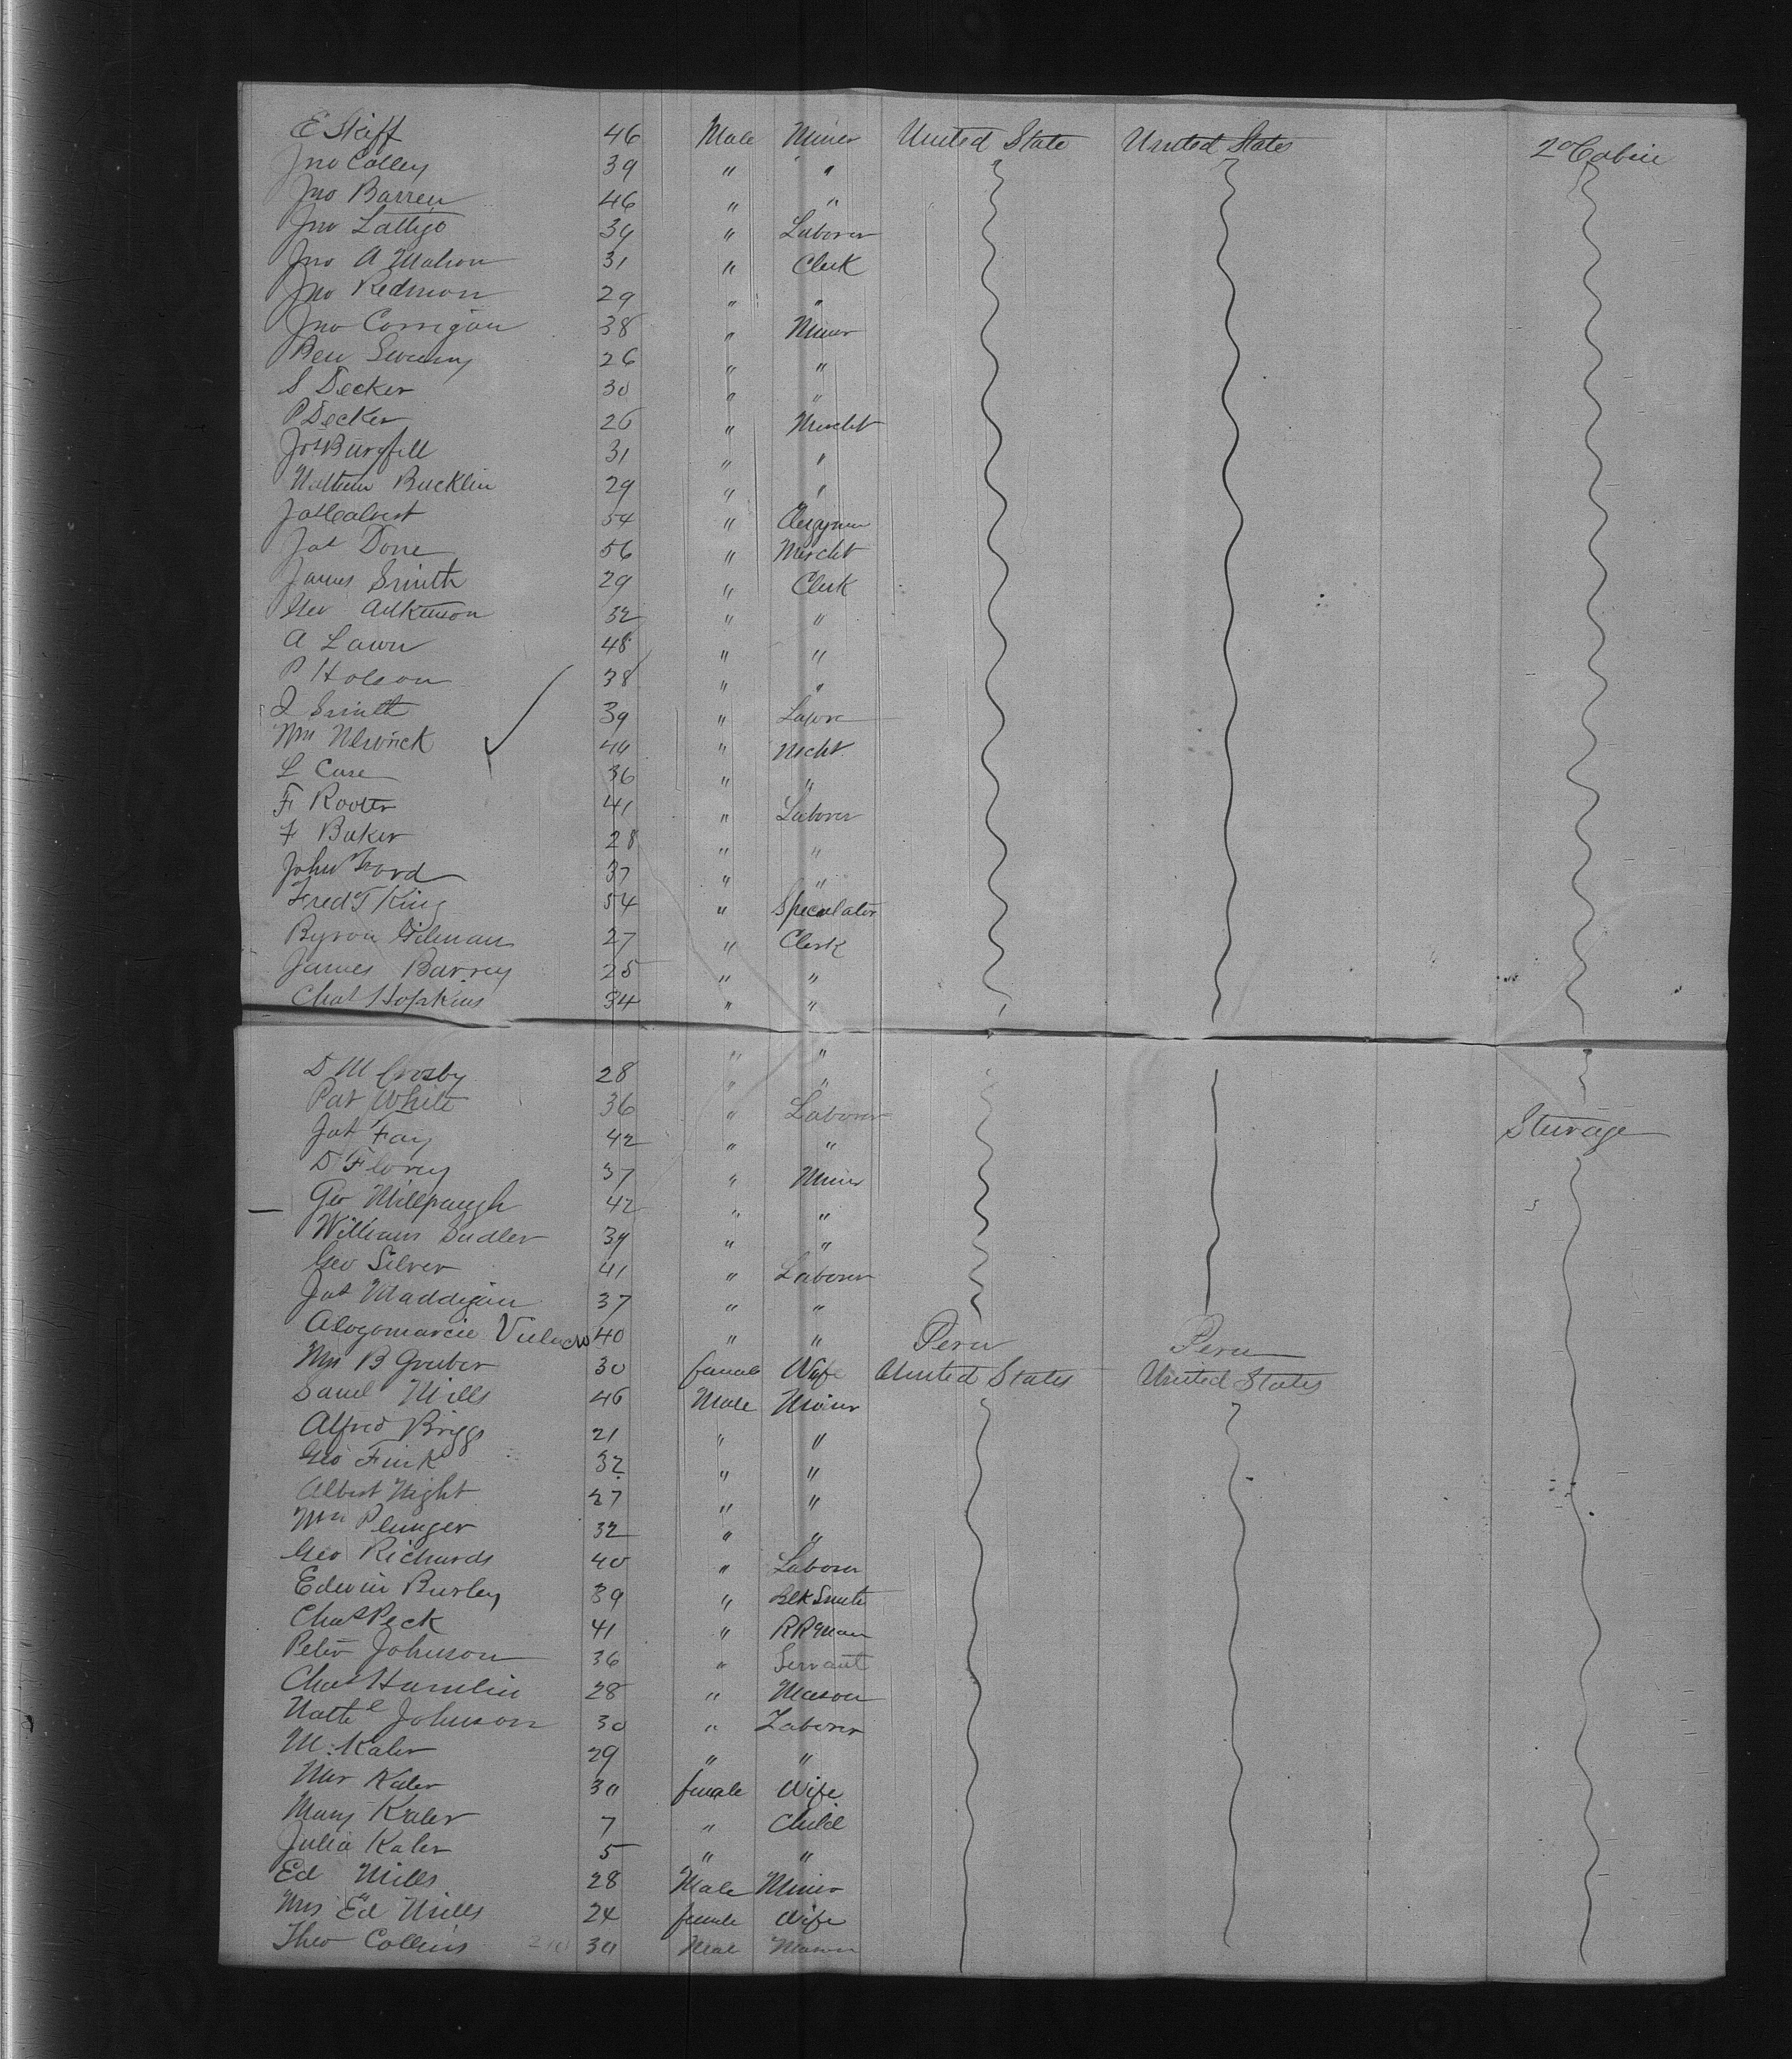 E Skiff 46 Male Miner United State United States 2º Cabin
Jno Colley 39 " "
Jno Barren 46 " "
Jno Lattigo 39 " Laborer
Jno A Mahon 31 " Clerk
Jno Redmon 29 " "
Jno Corrigan 38 " Miner
Ben Sweeny 26 " "
S Decker 30 " "
P Decker 26 " Mercht
Jos Burgfell 31 " "
Nathan Bucklin 29 " "
Jas Calvert 54 " Clergyman
Jas Dorre 56 " Mercht
James Smith 29 " Clerk
Geo Adkinson 32 " "
A Lawn 48 " "
P Holson 38 " "
J Smith 39 "
Wm Newrick 40 " Mcht
L Case 36 " "
F Rooter 41 " Laborer
F Baker 28 " "
John Ford 37 " "
Fred T King 54 " Speculator
Byron Gilman 27 " Clerk
James Barrey 25 " "
Chas Hopkins 34 " "
" "
D M Crosby 28 " "
Pat White 36 " Laborer
Jas Fay 42 " " Sturage
D Florey 37 " Miner
Geo Millpaugh 42 " "
William Sudler 39 " "
Geo Silver 41 " Laborer
Jas Maddigan 37 " "
40 " " Peru Peru
Mrs B Gruber 30 female Wife United States United States
Saml Mills 46 Male Miner
Alfred Briggs 21 " "
Geo Fink 32 " "
Albert Night 27 " "
Wm Plunger 32 " "
Geo Richards 40 " Laborer
Edwin Burley 39 " Blk Smith
Chas Peck 41 " RR Man
Peter Johnson 36 " Servant
Chas Hamlin 28 " Mason
Nathl Johnson 30 " Laborer
M. Kaler 29 " "
Mrs Kaler 30 female Wife
Mary Kaler 7 " Child
Julia Kaler 5 " "
Ed Mills 28 Male Miner
Mrs Ed Mills 24 female Wife
Theo Collins 30 Male Mason